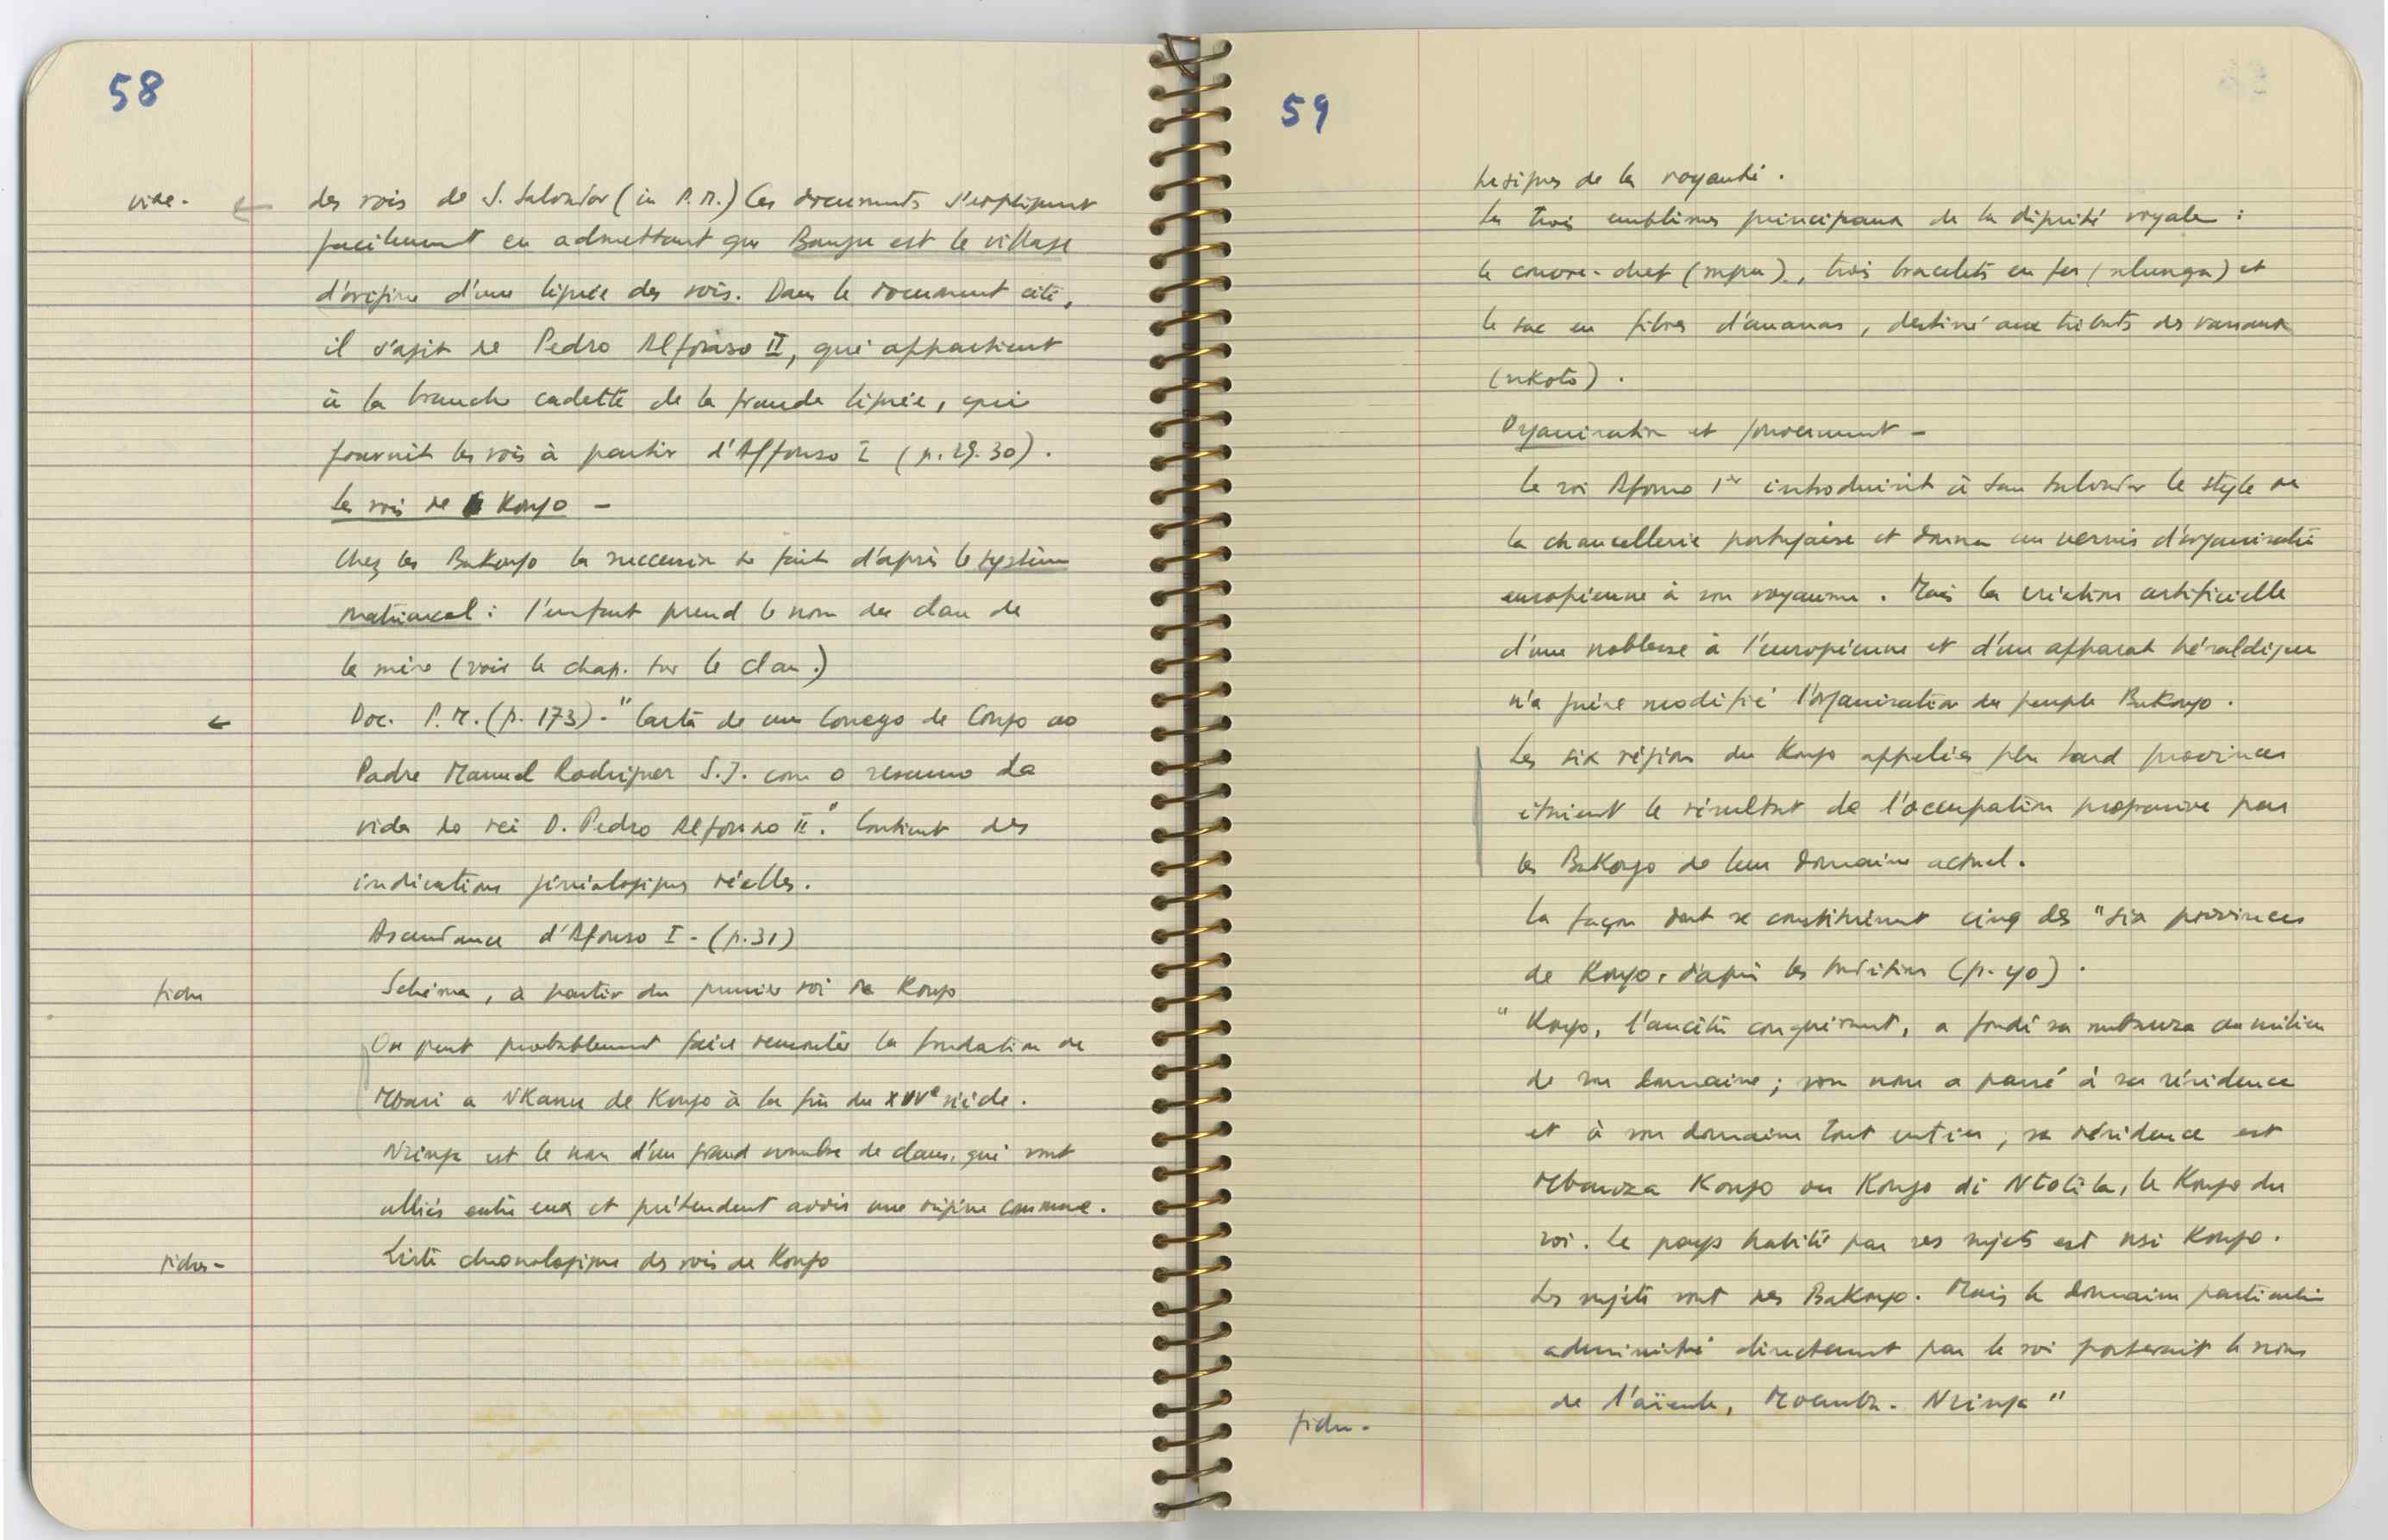 58
des rois de S. Salvador (in P.M.) Ces documents s'expliquent
facilement en admettant que Bangu est le village
d'origine d'une lignée des rois. Dans le document cité,
il s'agit de Pedro Affonso II, qui appartient
à la branche cadette de la grande lignée, qui
fournit les rois à partir d'Affonso I (p. 29.30).
Les rois de Kongo –
Chez les BaKongo la succession se fait d'après le système
matriarcal : l'enfant prend le nom du clan de
la mère (voir le chap. sur le clan.)
← Doc. P.M. (p. 173) - "Carta de um Conego de Congo ao
Padre Manuel Rodriguez S.J. com o resumo da
vida do rei D. Pedro Affonso II". Contient des
indications généalogiques réelles.
Ascendance d'Afonso I - (p. 31)
fiche Schéma, à partir du premier roi de Kongo
On peut probablement faire remonter la fondation de
Mbasi a NKanu de Kongo à la fin du XIVe siècle.
Nzinga est le nom d'un grand nombre de clans, qui sont
alliés entre eux et prétendent avoir une origine commune.
fiches - Liste chronologique des rois de Kongo
59
de la royauté.
Les trois emblèmes principaux de la dignité royale :
le couvre-chef (mpu)., trois bracelets en fer (nlunga) et
le sac en fibres d'ananas, destiné aux tributs des vassaux
(nkoto).
Organisation et gouvernement –
Le roi Afonso 1er introduisit à San Salvador le style de
la chancellerie portugaise et donna un vernis d'organisation
européenne à son royaume. Mais la création artificielle
d'une noblesse à l'européenne et d'un apparat héraldique
n'a guère modifié l'organisation du peuple BaKongo.
Les six régions du Kongo appelées plus tard provinces
étaient le résultat de l'occupation progressive par
les BaKongo de leur domaine actuel.
La façon dont se constituèrent cinq des "six provinces
de Kongo, d'après les traditions (p. 40).
"Kongo, l'ancêtre conquérant, a fondé sa mbanza au milieu
de son domaine ; son nom a passé à sa résidence
et à son domaine tout entier ; sa résidence est
Mbanza Kongo ou Kongo di Ntotila, le Kongo du
roi. Le pays habité par ses sujets est nsi Kongo.
Les sujets sont des BaKongo. Mais le domaine particulier
administré directement par le roi porterait le nom
de l'aïeule, Nzinga"
fiche -